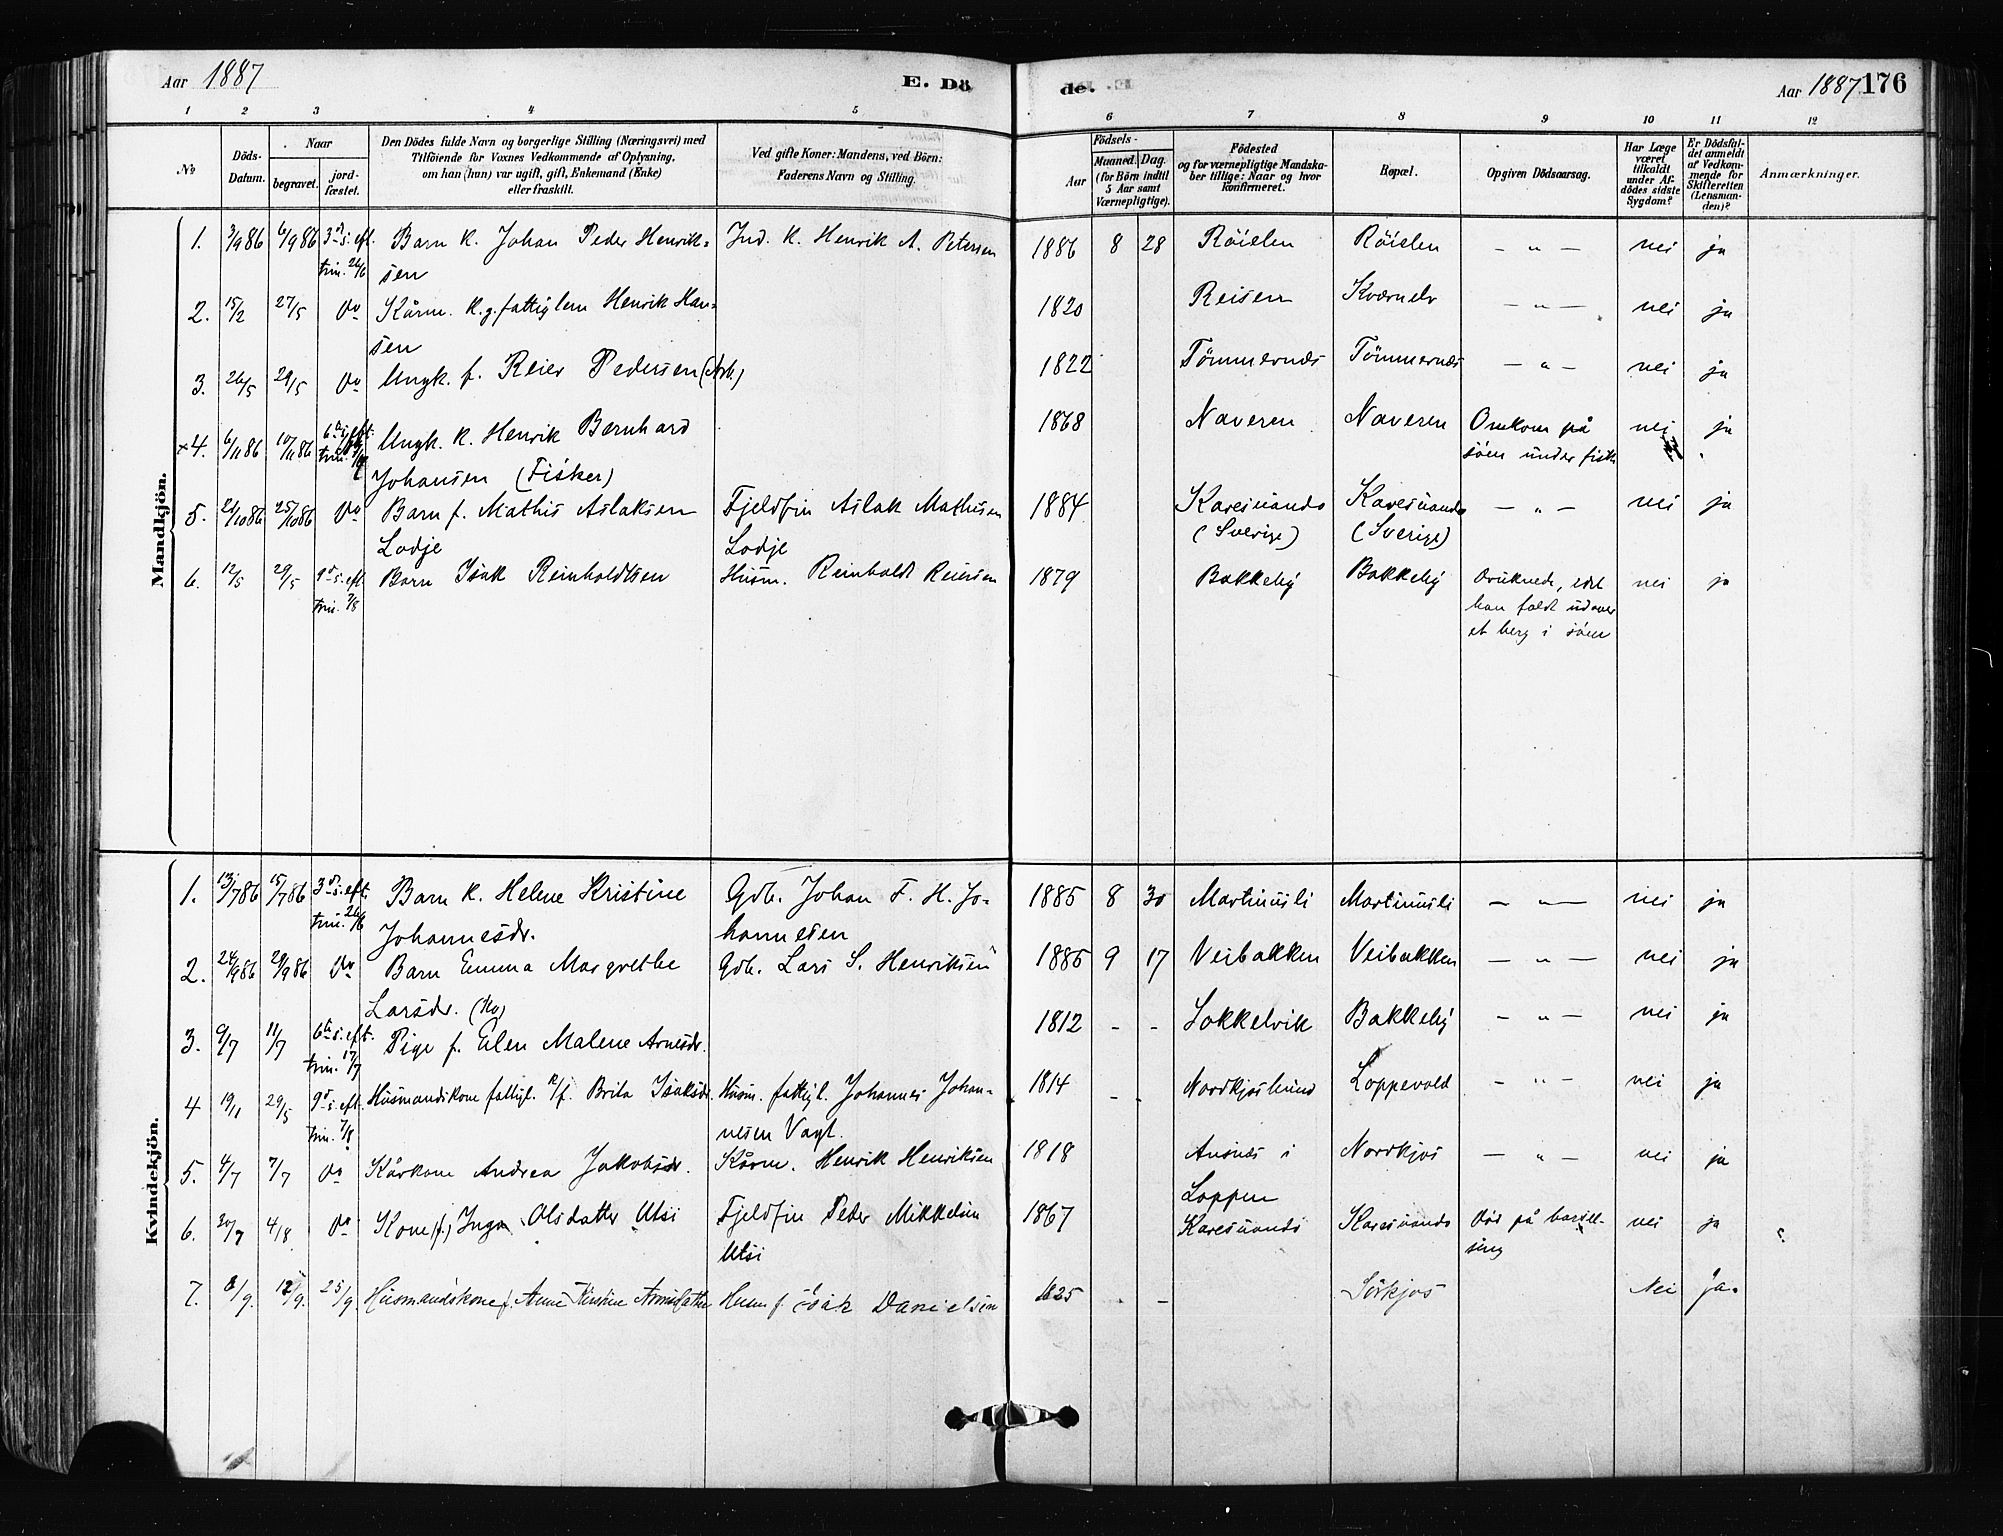 Aar 1887 E. Dö de. Aar 1887. 176
1 2 3 4 5 6 7 8 9 10 11 12
No
Döds-Datum.
Naar
begravet.
jord-fæstet.
Den Dödes fulde Navn og borgerlige Stilling (Næringsvei) med
Tilföiende for Voxnes Vedkommende af Oplysning,
om han (hun) var ugift, gift, Enkemand (Enke)
eller fraskilt.
Ved gifte Koner: Mandens, ved Börn:
Faderens Navn og Stilling.
Födsels-
Aar
Maaned. Dag.
(for Börn indtil
5 Aar samt
Værnepligtige).
Födested
og for værnepligtige Mandska-
ber tillige: Naar og hvor
Konfirmeret.
Bopæl.
Opgiven Dödsaarsag.
Har Læge
været
tilkaldt
under Af-
dödes sidste
Sygdom?
Er Dödsfal-
det anmeldt
af Vedkom-
mende for
Skifteretten
(Lensman-
den)?
Anmærkninger.
Mandkjön.
1. 3/9 86 6/9 86 3d s. eft. Barn k. Johan Peder Henrik- Ind. k. Henrik A. Petersen 1886 8 28 Röielen Röielen — " — nei ja
trin. 26/6 sen
2. 15/2 27/5 do Kårm. k. g. fattiglem Henrik Han- 1820 Reisen Kværnelv — " — nei ja
sen
3. 26/5 29/5 do Ungk. f. Reier Pedersen (Arb.) 1822 Tömmernæs Tömmernæs — " — nei ja
×4. 6/11 86 10/11 86 6te s. eft. Ungk. k. Henrik Bernhard 1868 Naveren Naveren Omkom på nei ja
trin. Johansen (Fisker) söen under fisk
5. 21/10 86 25/10 86 do Barn f. Mathis Aslaksen Fjeldfin Aslak Mathisen 1884 Karesuando Karesuando — " — nei ja
Lodje Lodje (Sverige) (Sverige)
6. 12/5 29/5 9d s. eft. Barn Isak Reinholdtsen Husm. Reinholdt Reiersen 1879 Bakkeby Bakkeby Druknede, idet nei ja
trin. 7/8 han faldt udover
et berg i söen
Kvindekjön.
1. 13/7 86 15/7 86 3d s. eft. Barn k. Helene Kristine Gdb. Johan F. H. Jo- 1885 8 30 Martinusli Martinusli — " — nei ja
trin. 26/6 Johannesdr. hannesen
2. 24/9 86 29/9 86 do Barn Emma Margrethe Gdb. Lars S. Henriksen 1885 9 17 Veibakken Veibakken — " — nei ja
Larsdr.
3. 9/7 11/7 6te s. eft. Pige f. Elen Malene Arnesdr. 1812 - - Lokkelvik Bakkeby — " — nei ja
trin. 17/7
4 19/11 29/5 9d s. eft. Husmandskone fattigl. k/f. Brita Isaksdr. Husm. fattigl. Johannes Johan- 1814 - - Nordkjosbund Loppevold - " - nei ja
trin. 7/8 nesen Vagt.
5. 4/7 7/7 do Kårkone Andrea Jakobsdr. Kårm. Henrik Henriksen 1818 Ansnes i Nordkjos — " — nei ja
Loppen
6. 20/7 4/8 do Kone (f.) Inga Olsdatter Utsi Fjeldfin Peder Mikkelsen 1867 Karesuando Karesuando död på barsel- nei ja
Utsi seng
7. 8/9. 12/9. 25/9 Husmandskone f. Anne Kirstine Husm f. Isak Danielsen 1825 - Sörkjos Nei ja.